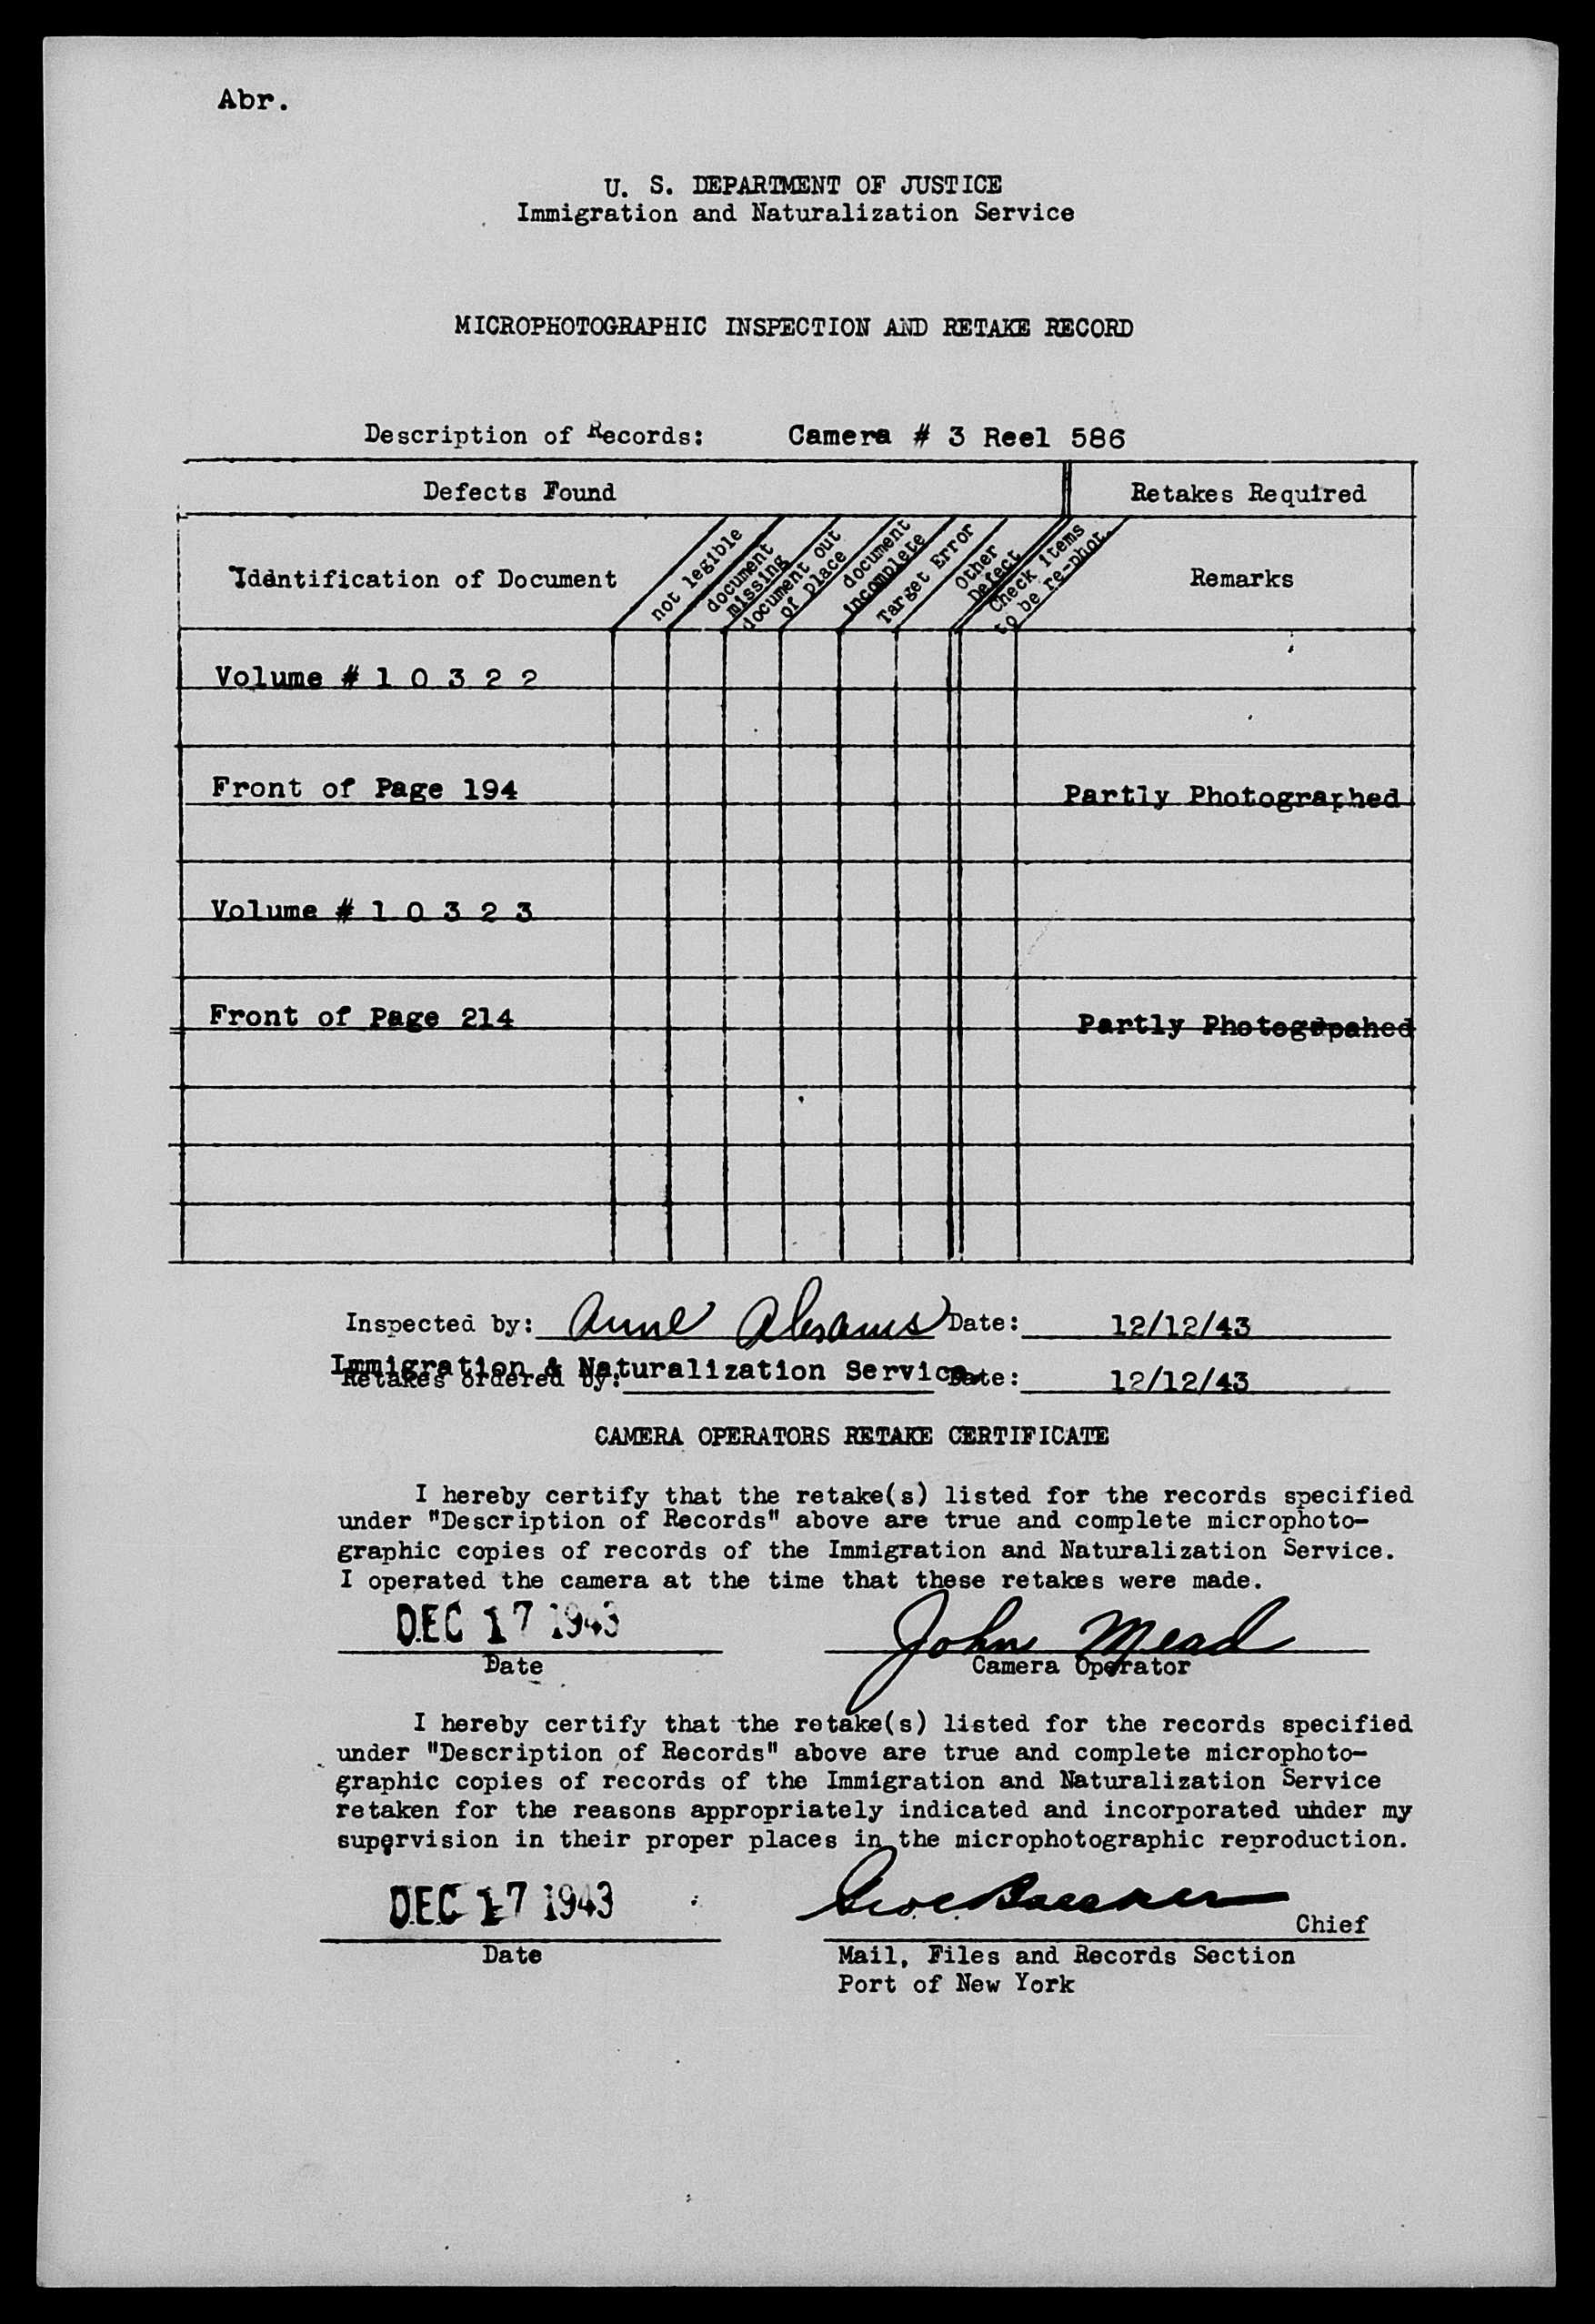 Abr.
U. S. DEPARTMENT OF JUSTICE
Immigration and Naturalization Service
MICROPHOTOGRAPHIC INSPECTION AND RETAKE RECORD
Description of Records: Camera # 3 Reel 586
Defects Found Retakes Required
Identification of Document
not legible
document missing
document out of place
document incomplete
Target Error
Other Defect
Check items to be re-phot.
Remarks
Volume # 1 0 3 2 2
Front of Page 194 Partly Photographed
Volume # 1 0 3 2 3
Front of Page 214 Partly
Inspected by: Anne Abrams Date: 12/12/43
Immigration & Naturalization Service.
Retakes ordered by: Date: 12/12/43
CAMERA OPERATORS RETAKE CERTIFICATE
I hereby certify that the retake(s) listed for the records specified
under "Description of Records" above are true and complete microphoto-
graphic copies of records of the Immigration and Naturalization Service.
I operated the camera at the time that these retakes were made.
DEC 17 1943 John Mead
Date Camera Operator
I hereby certify that the retake(s) listed for the records specified
under "Description of Records" above are true and complete microphoto-
graphic copies of records of the Immigration and Naturalization Service
retaken for the reasons appropriately indicated and incorporated under my
supervision in their proper places in the microphotographic reproduction.
DEC 17 1943 Chief
Date Mail, Files and Records Section
Port of New York